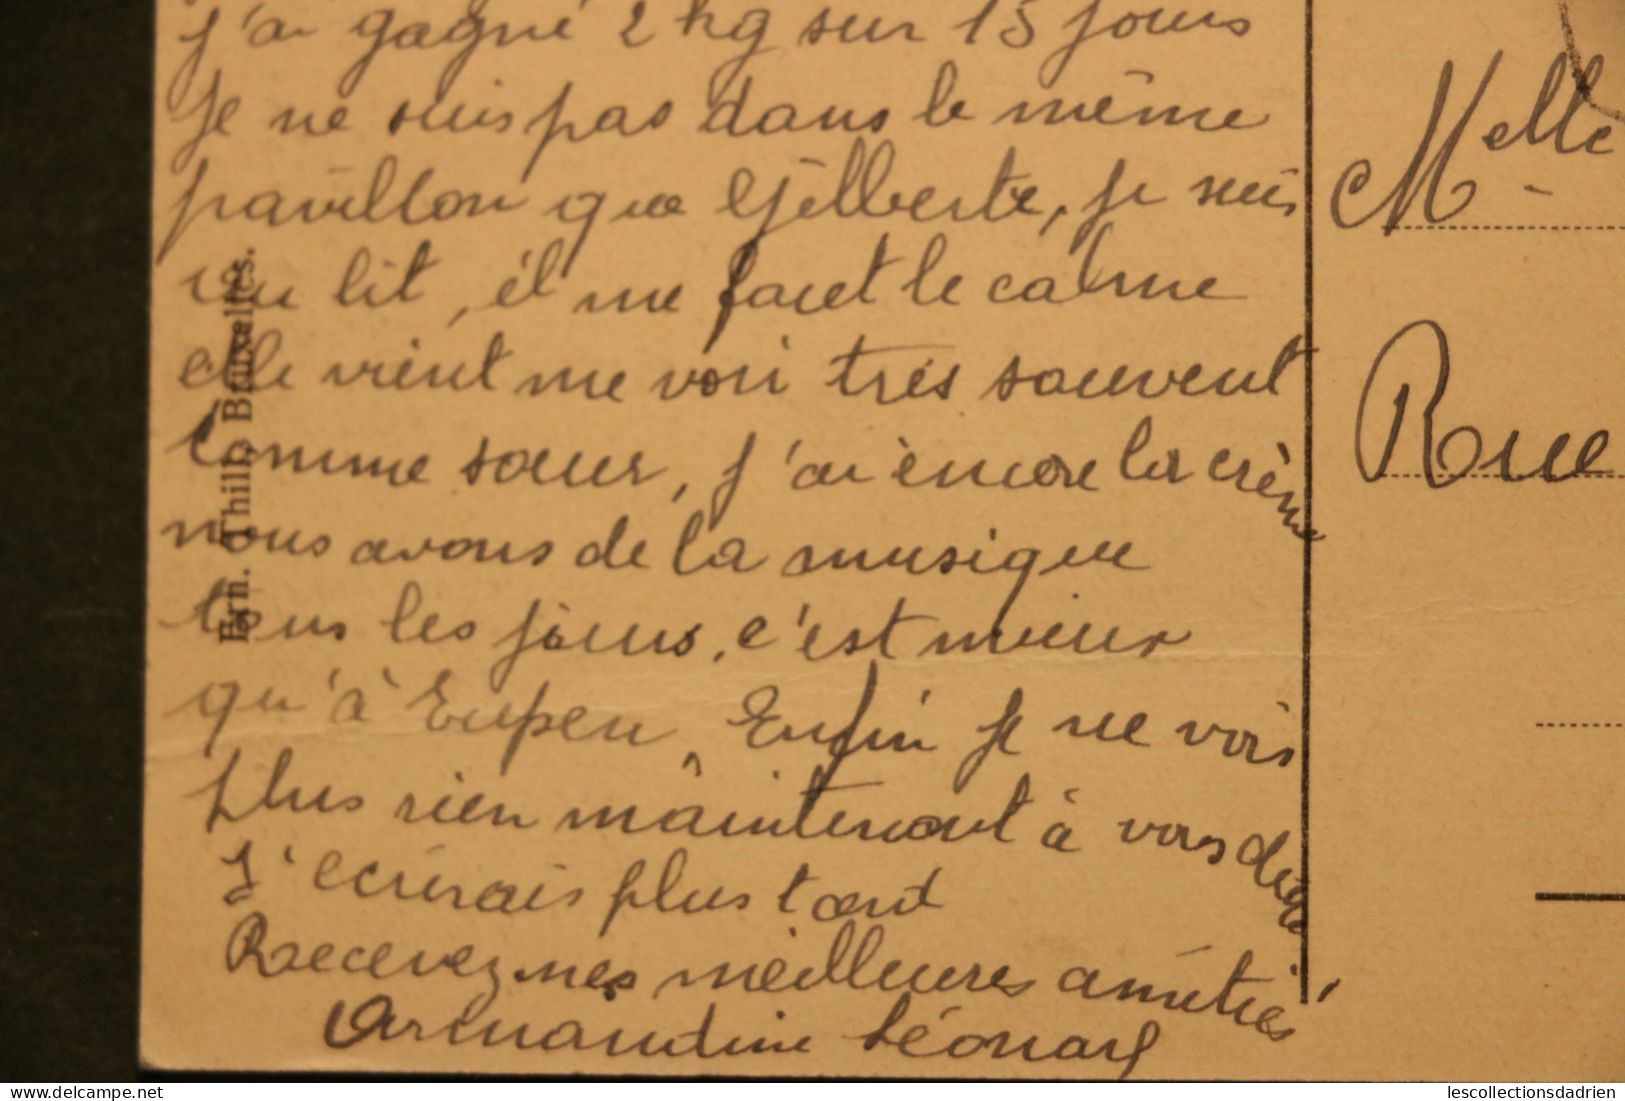 j'ai gagné 2 kg sur 15 jours
Je ne suis pas dans le même
pavillon que Gilberte, je suis
au lit, il me faut le calme
elle vient me voir très souvent
comme sœur, j'ai encore la crème
nous avons de la musique
tous les jours, c'est mieux
qu'à Eupen. Enfin je ne vois
plus rien maintenant à vous dire
J'écrirais plus tard
Recevez mes meilleures amitiés
Armandine Léonard
Ern. Thill, Bruxelles.
Melle
Rue
lescollectionsdadrien